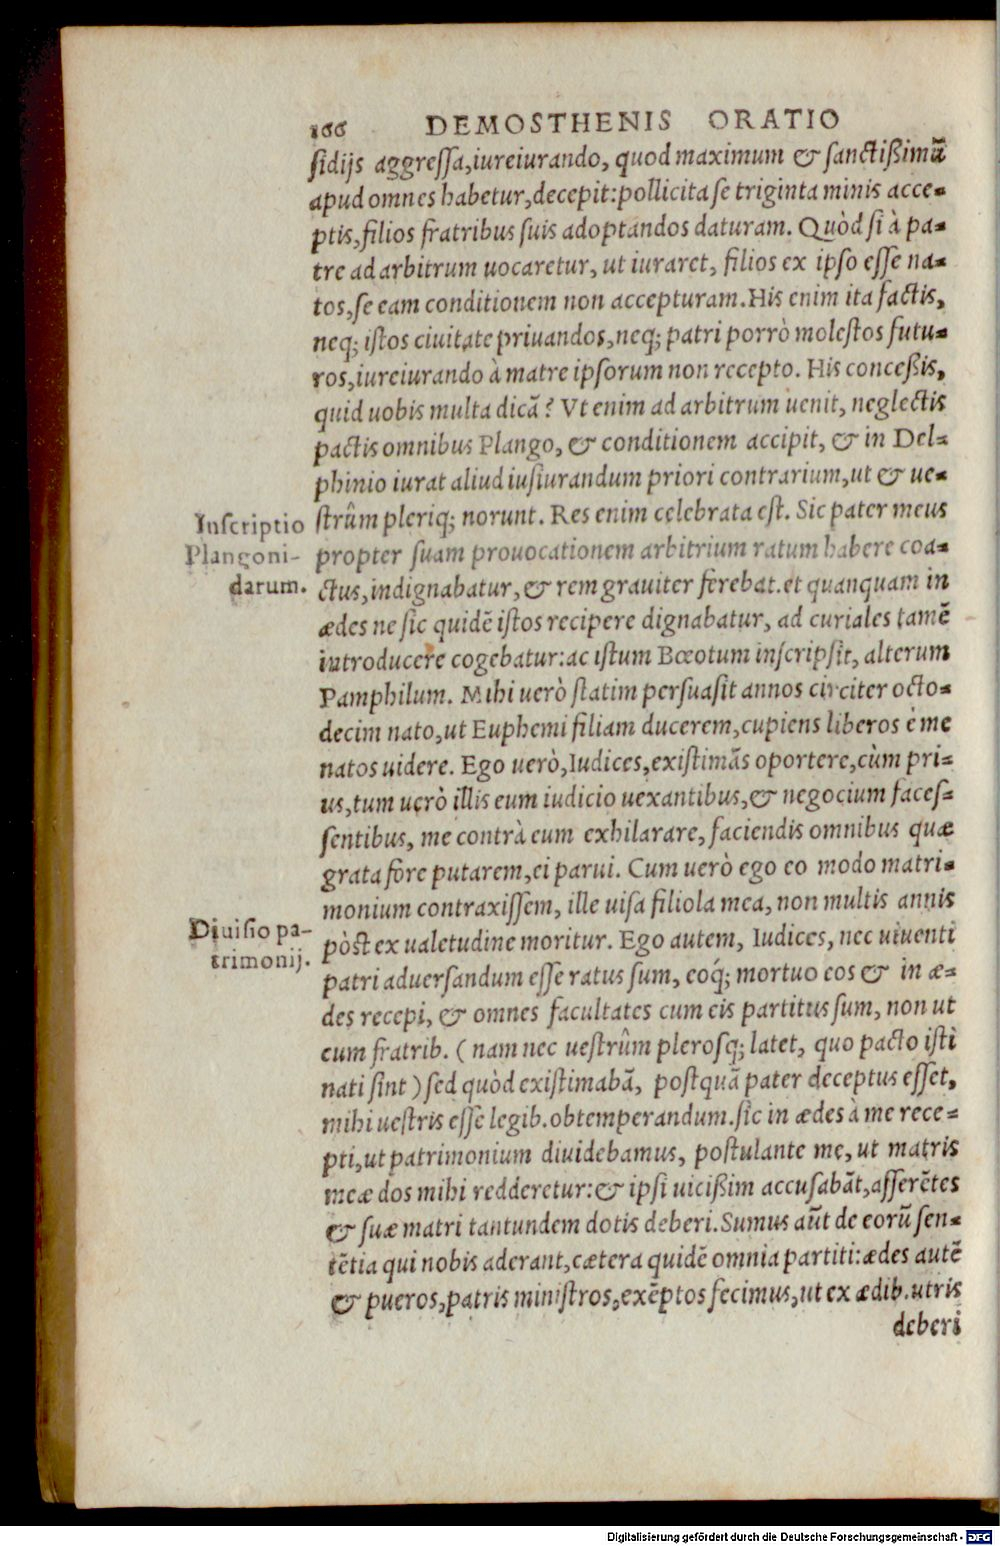 166 DEMOSTHENIS ORATIO
sidijs aggressa, iureiurando, quod maximum & sanctißimũ
apud omnes habetur, decepit: pollicita se triginta minis acce-
ptis, filios fratribus suis adoptandos daturam. Quòd si à pa-
tre ad arbitrum uocaretur, ut iuraret, filios ex ipso esse na-
tos, se eam conditionem non accepturam. His enim ita factis,
neq; istos ciuitate priuandos, neq; patri porrò molestos futu-
ros, iureiurando à matre ipsorum non recepto. His conceßis,
quid uobis multa dicã? Vt enim ad arbitrum uenit, neglectis
pactis omnibus Plango, & conditionem accipit, & in Del-
phinio iurat aliud iusiurandum priori contrarium, ut & ue-
strûm pleriq; norunt. Res enim celebrata est. Sic pater meus
Inscriptio
Plangoni-
darum.
propter suam prouocationem arbitrium ratum habere coa-
ctus, indignabatur, & rem grauiter ferebat. et quanquam in
ædes ne sic quidẽ istos recipere dignabatur, ad curiales tamẽ
introducere cogebatur: ac istum Bœotum inscripsit, alterum
Pamphilum. Mihi uerò statim persuasit annos circiter octo-
decim nato, ut Euphemi filiam ducerem, cupiens liberos è me
natos uidere. Ego uerò, Iudices, existimãs oportere, cùm pri-
us, tum uerò illis eum iudicio uexantibus, & negocium faces-
sentibus, me contrà eum exhilarare, faciendis omnibus quæ
grata fore putarem, ei parui. Cum uerò ego eo modo matri-
monium contraxissem, ille uisa filiola mea, non multis annis
Diuisio pa-
trimonij.
pòst ex ualetudine moritur. Ego autem, Iudices, nec uiuenti
patri aduersandum esse ratus sum, eoq́; mortuo eos & in æ-
des recepi, & omnes facultates cum eis partitus sum, non ut
cum fratrib. (nam nec uestrûm plerosq; latet, quo pacto isti
nati sint) sed quòd existimabã, postquã pater deceptus esset,
mihi uestris esse legib. obtemperandum. sic in ædes à me rece-
pti, ut patrimonium diuidebamus, postulante me, ut matris
meæ dos mihi redderetur: & ipsi uicißim accusabãt, asserẽtes
& suæ matri tantundem dotis deberi. Sumus aũt de eorũ sen-
tẽtia qui nobis aderant, cætera quidẽ omnia partiti: ædes autẽ
& pueros, patris ministros, exẽptos fecimus, ut ex ædib. utris
deberi
Digitalisierung gefördert durch die Deutsche Forschungsgemeinschaft - DFG